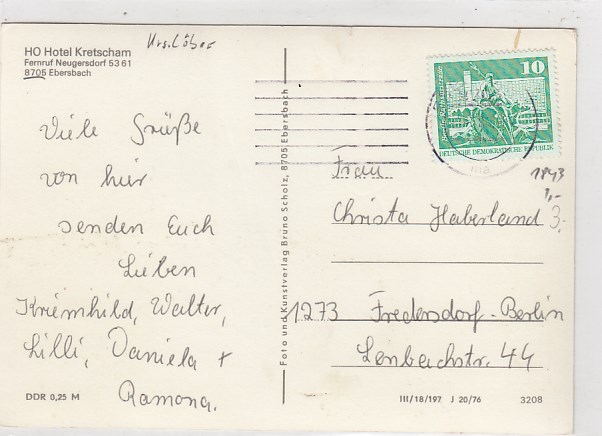 HO Hotel Kretscham
Fernruf Neugersdorf 53 61
8705 Ebersbach
Viele Grüße
von hier
senden Euch
Lieben
Kriemhild, Walter,
Lilli, Daniela +
Ramona.
DDR 0,25 M
Foto und Kunstverlag Bruno Scholz, 8705 Ebersbach
10
DEUTSCHE DEMOKRATISCHE REPUBLIK
Frau
1843
3,-
Christa Haberland
3,-
1273 Fredersdorf-Berlin
Lenbachstr. 44
III/18/197 J 20/76
3208